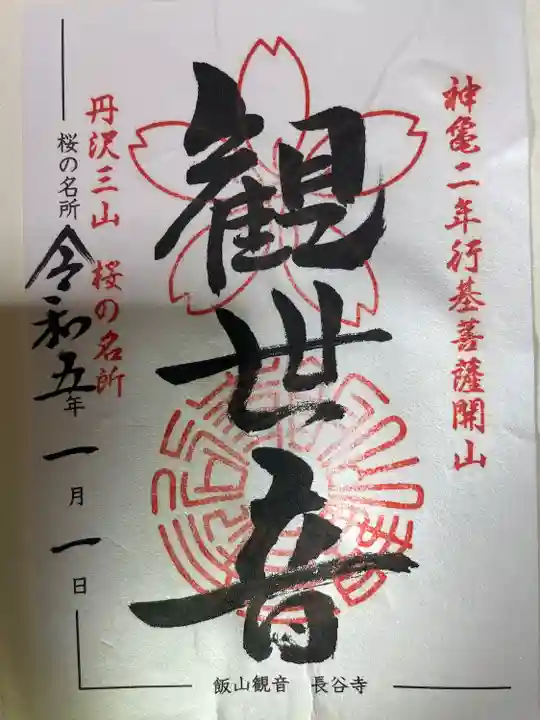 神亀二年行基菩薩開山
観世音
丹沢三山 桜の名所
桜の名所
令和五年一月一日
飯山観音 長谷寺